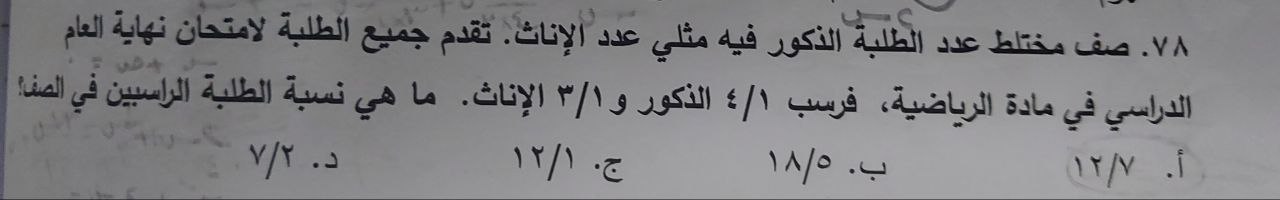 ٧٨. صف مختلط عدد الطلبة الذكور فيه مثلي عدد الإناث. تقدم جميع الطلبة لامتحان نهاية العام
الدراسي في مادة الرياضية، فرسب ٤/١ الذكور و ٣/١ الإناث. ما هي نسبة الطلبة الراسبين في الصف؟
أ. ١٢/٧ ب. ١٨/٥ ج. ١٢/١ د. ٧/٢